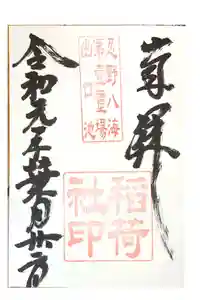 拝
忍野八海
第壹霊場
出口池
稲荷
社印
令和元年葉月廿日